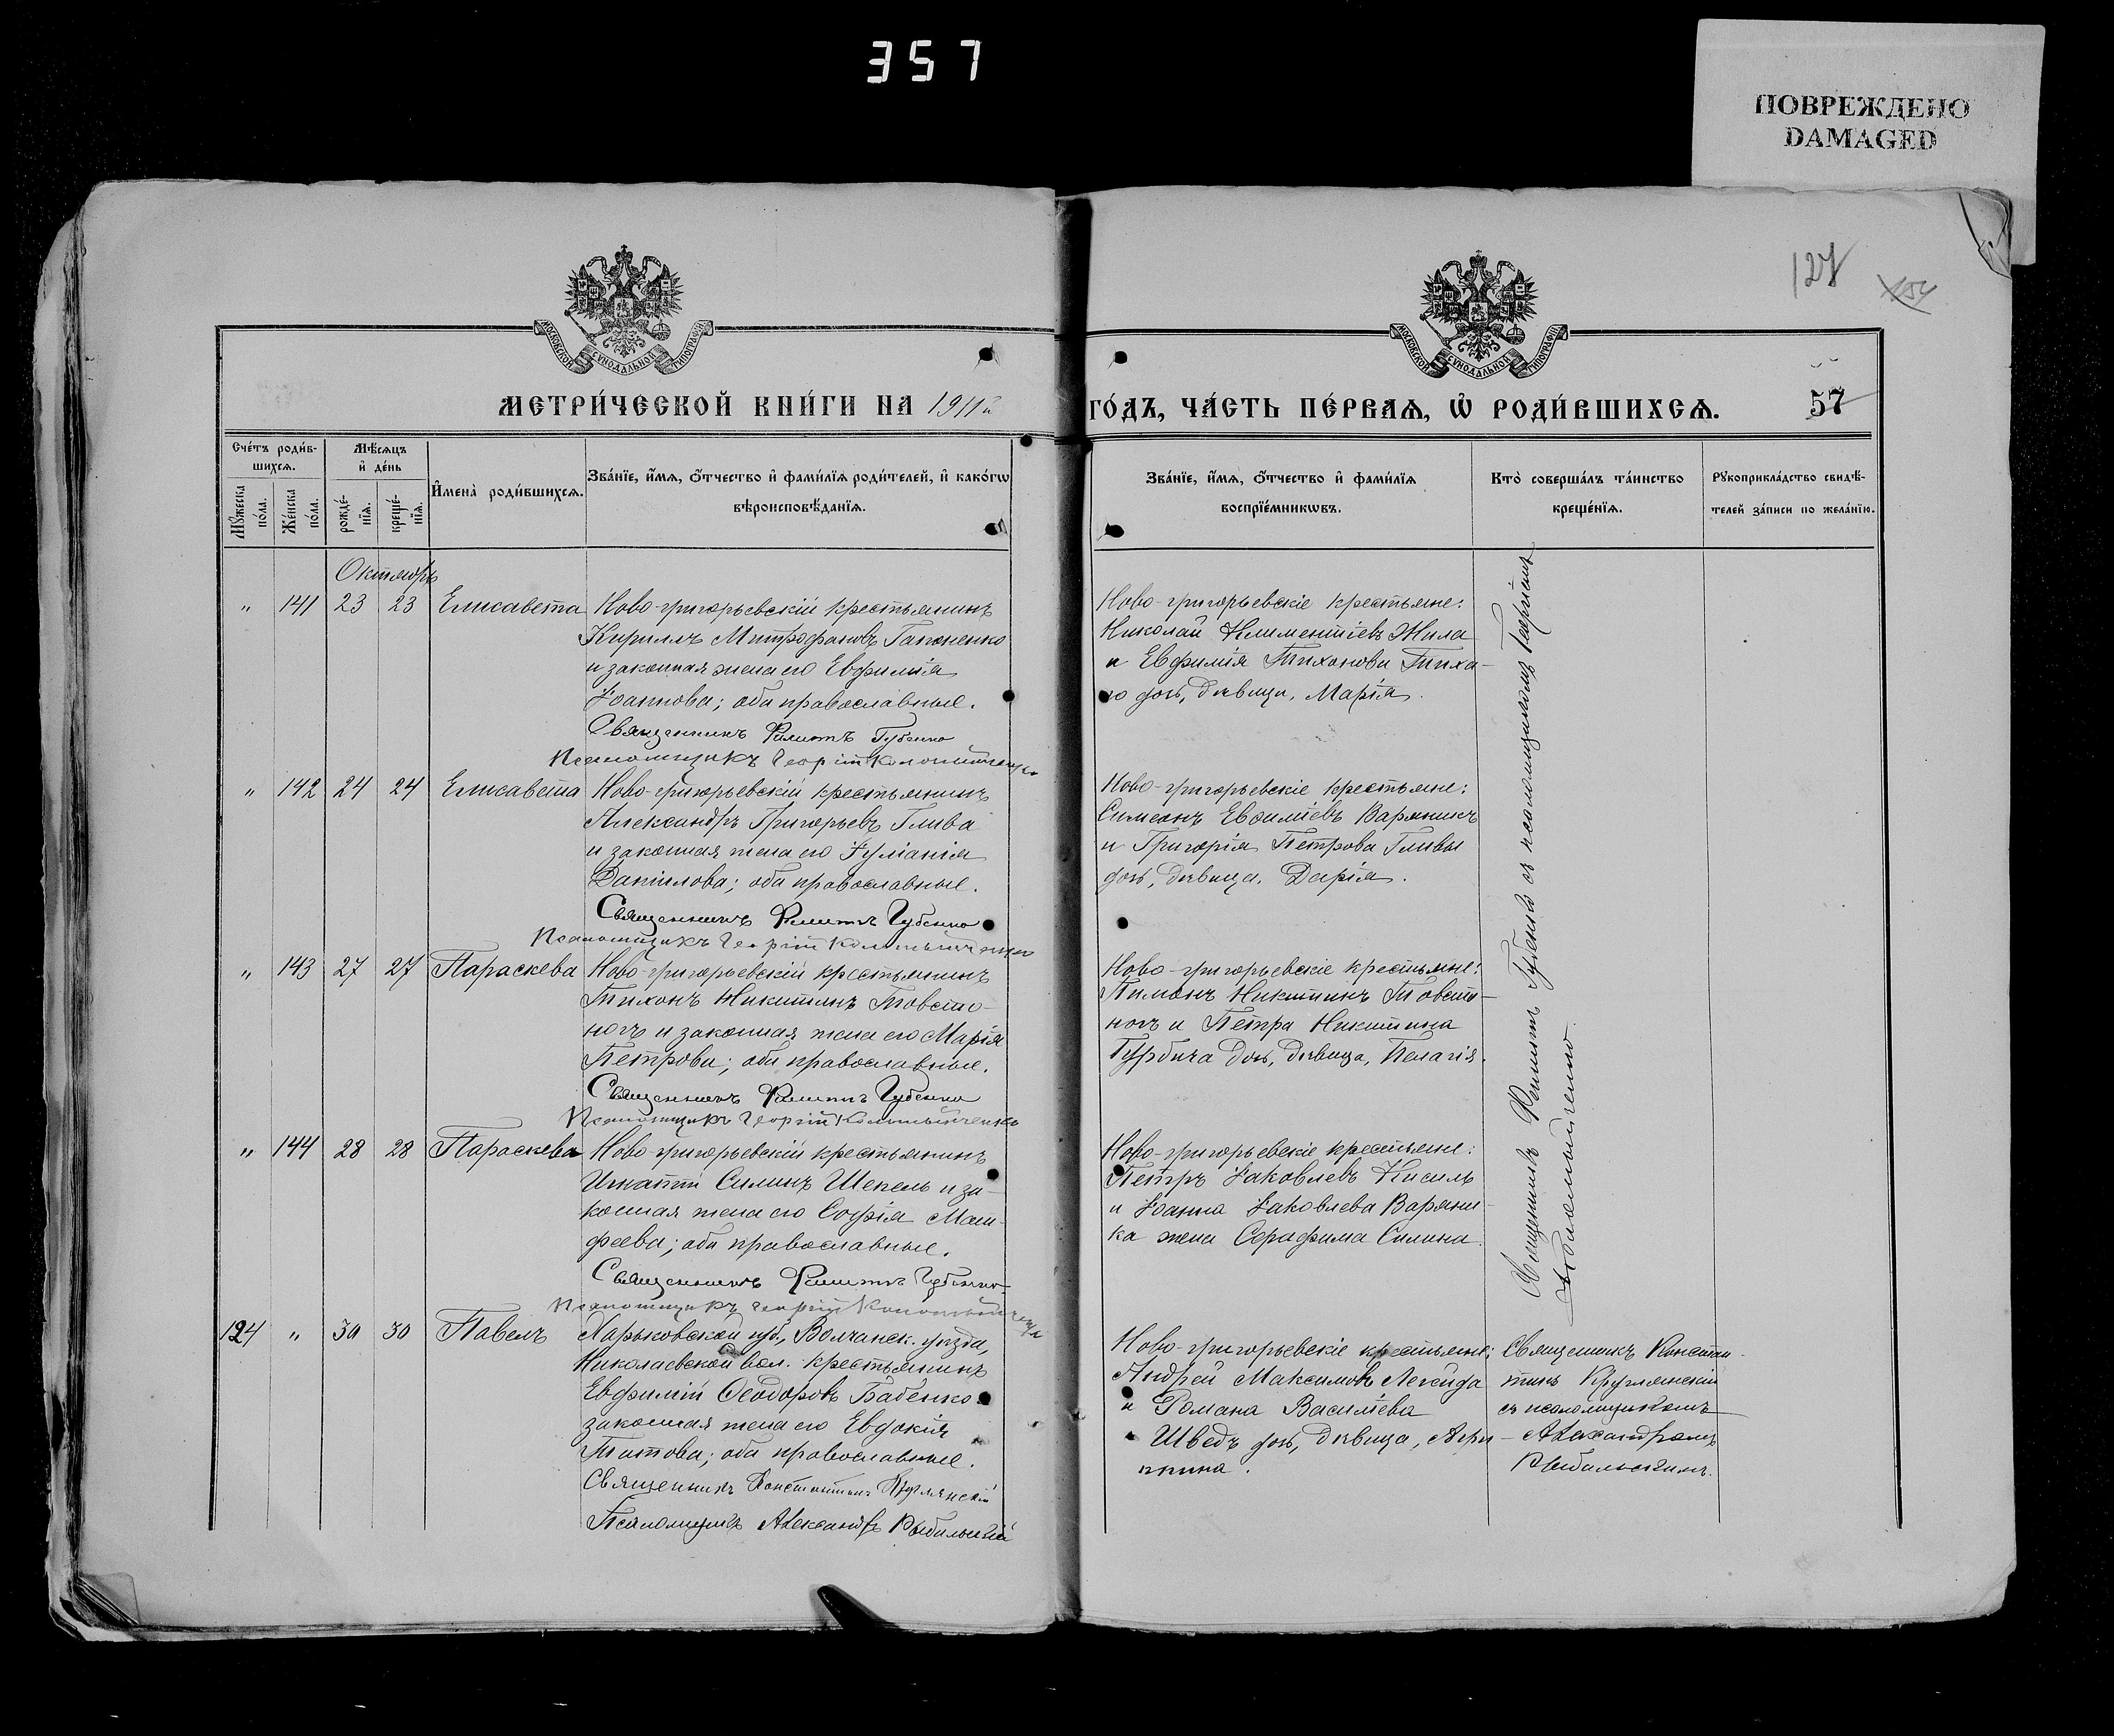 357
ПОВРЕЖДЕНО
DAMAGED
127
154
МОСКОВСКОЙ СѴНОДАЛЬНОЙ ТИПОГРАФІИ
МОСКОВСКОЙ СѴНОДАЛЬНОЙ ТИПОГРАФІИ
МЕТРИ́ЧЕСКОЙ КНИ́ГИ НА 1911й
ГО́ДЪ, ЧА́СТЬ ПЕ́РВАѦ, Ѡ҆ РОДИ́ВШИХСѦ.
57
Сче́тъ роди́в-
шихсѧ.
Мѣ́сѧцъ
и҆ де́нь
Мꙋ́жеска
по́ла.
Же́нска
по́ла.
рожде́-
нїѧ.
креще́-
нїѧ.
И҆мена̀ роди́вшихсѧ.
Зва́нїе, и҆́мѧ, ѻ҆́тчество и҆ фами́лїѧ роди́телей, и҆ како́гѡ
вѣроисповѣ́данїѧ.
Зва́нїе, и҆́мѧ, ѻ҆́тчество и҆ фами́лїѧ
воспрїе́мникѡвъ.
Кто̀ соверша́лъ та́инство
креще́нїѧ.
Рꙋкоприкла́дство свидѣ́-
телей за́писи по жела́нїю.
Октябрь
" 141 23 23 Елисавета Ново-григорьевскій крестьянинъ
Кириллъ Митрофановъ Гапоненко
и законная жена его Евфимія
Іоаннова; оба православные.
Священникъ Филиппъ Губенко
Псаломщикъ Георгій
Ново-григорьевскіе крестьяне:
Николай Климентіевъ Жила
и Евфимія Тихонова Тиха-
го дочь, дѣвица, Марія.
" 142 24 24 Елисавета Ново-григорьевскій крестьянинъ
Александръ Григорьевъ Глива
и законная жена его Іуліанія
Даніилова; оба православные.
Священникъ Филиппъ Губенко
Псаломщикъ Георгій
Ново-григорьевскіе крестьяне:
Симеонъ Евфиміевъ Вареникъ
и Григорія Петрова Гливы
дочь, дѣвица, Дарія.
" 143 27 27 Параскева Ново-григорьевскій крестьянинъ
Тихонъ Никитинъ Товсто-
ногъ и законная жена его Марія
Петрова; оба православные.
Священникъ Филиппъ Губенко
Псаломщикъ Георгій
Ново-григорьевскіе крестьяне:
Пимонъ Никитинъ Товсто-
ногъ и Петра Никитина
Гурбича дочь, дѣвица, Пелагія.
" 144 28 28 Параскева Ново-григорьевскій крестьянинъ
Игнатій Силинъ Шекель и за-
конная жена его Софія Мат-
феева; оба православные.
Священникъ Филиппъ Губенко
Псаломщикъ Георгій
Ново-григорьевскіе крестьяне:
Петръ Іаковлевъ Кисиль
и Іоанна Іаковлева Варени-
ка жена Серафима Силина.
Священникъ Филиппъ Губенко съ псаломщикомъ Георгіемъ
124 " 30 30 Павелъ Харьковской губ., Волчанск. уѣзда,
Николаевской вол. крестьянинъ
Евфимій Ѳеодоровъ Бабенко и
законная жена его Евдокія
Титова; оба православные.
Священникъ Константинъ Круглянскій
Псаломщикъ Александръ Рыбальскій
Ново-григорьевскіе крестьяне:
Андрей Максимовъ Легейда
и Романа Василіева
Шведъ дочь, дѣвица, Агри-
пина.
Священникъ Констан-
тинъ Круглянскій
съ псаломщикомъ
Александромъ
Рыбальскимъ.